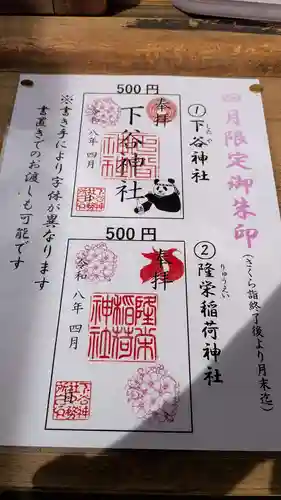 四月限定御朱印
(さくら詣終了後より月末迄)
500円
①下谷神社
したや
奉拝
下谷神社
令和八年四月
500円
②隆栄稲荷神社
りゅうえい
奉拝
隆栄
稲荷
神社
令和八年四月
※書き手により字体が異なります
書置きでのお渡しも可能です